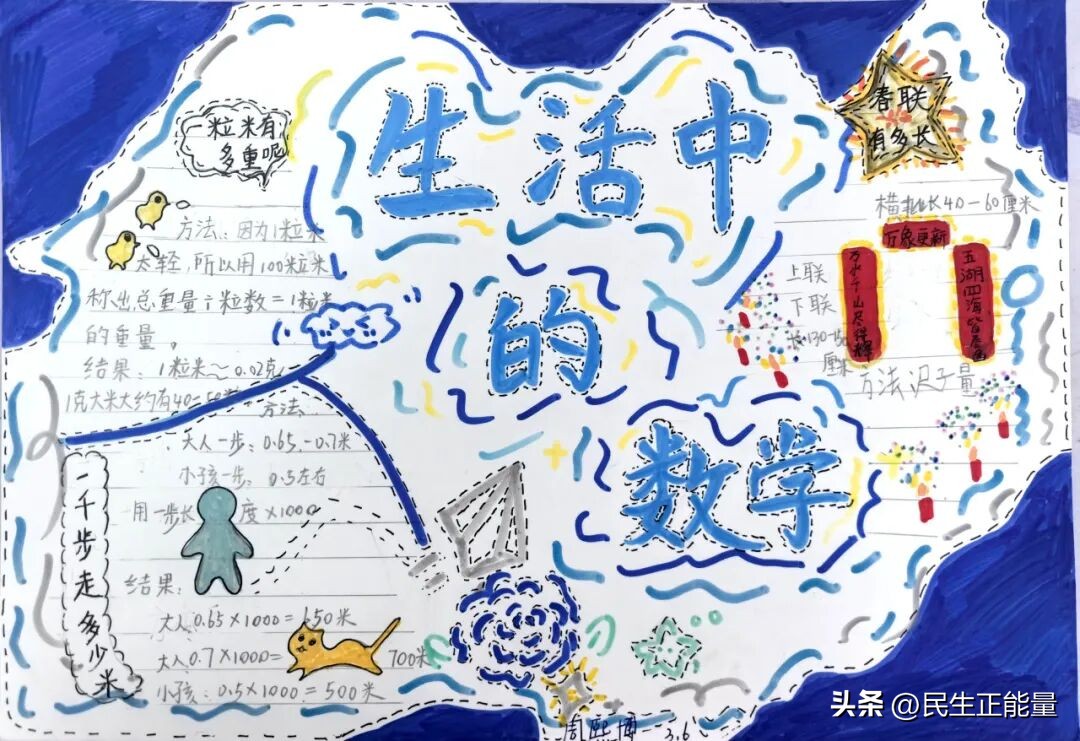 生活中
的
数学
一粒米有
多重呢
方法：因为1粒米
太轻，所以用100粒米
称出总重量÷粒数=1粒米
的重量。
结果：1粒米≈0.02克
1克大米大约有40=50
方法
大人一步：0.65-0.7米
小孩一步：0.5左右
用一步长 度×1000
一千步走多少米
结果：
大人0.65×1000=650米
大人0.7×1000= 700米
小孩：0.5×1000=500米
春联
有多长
横批长40-60厘米
万象更新
上联
下联
长130-150
厘米
万水千山尽得辉
五湖四海皆春色
方法：尺子量
周熙博 3.6
头条 @民生正能量